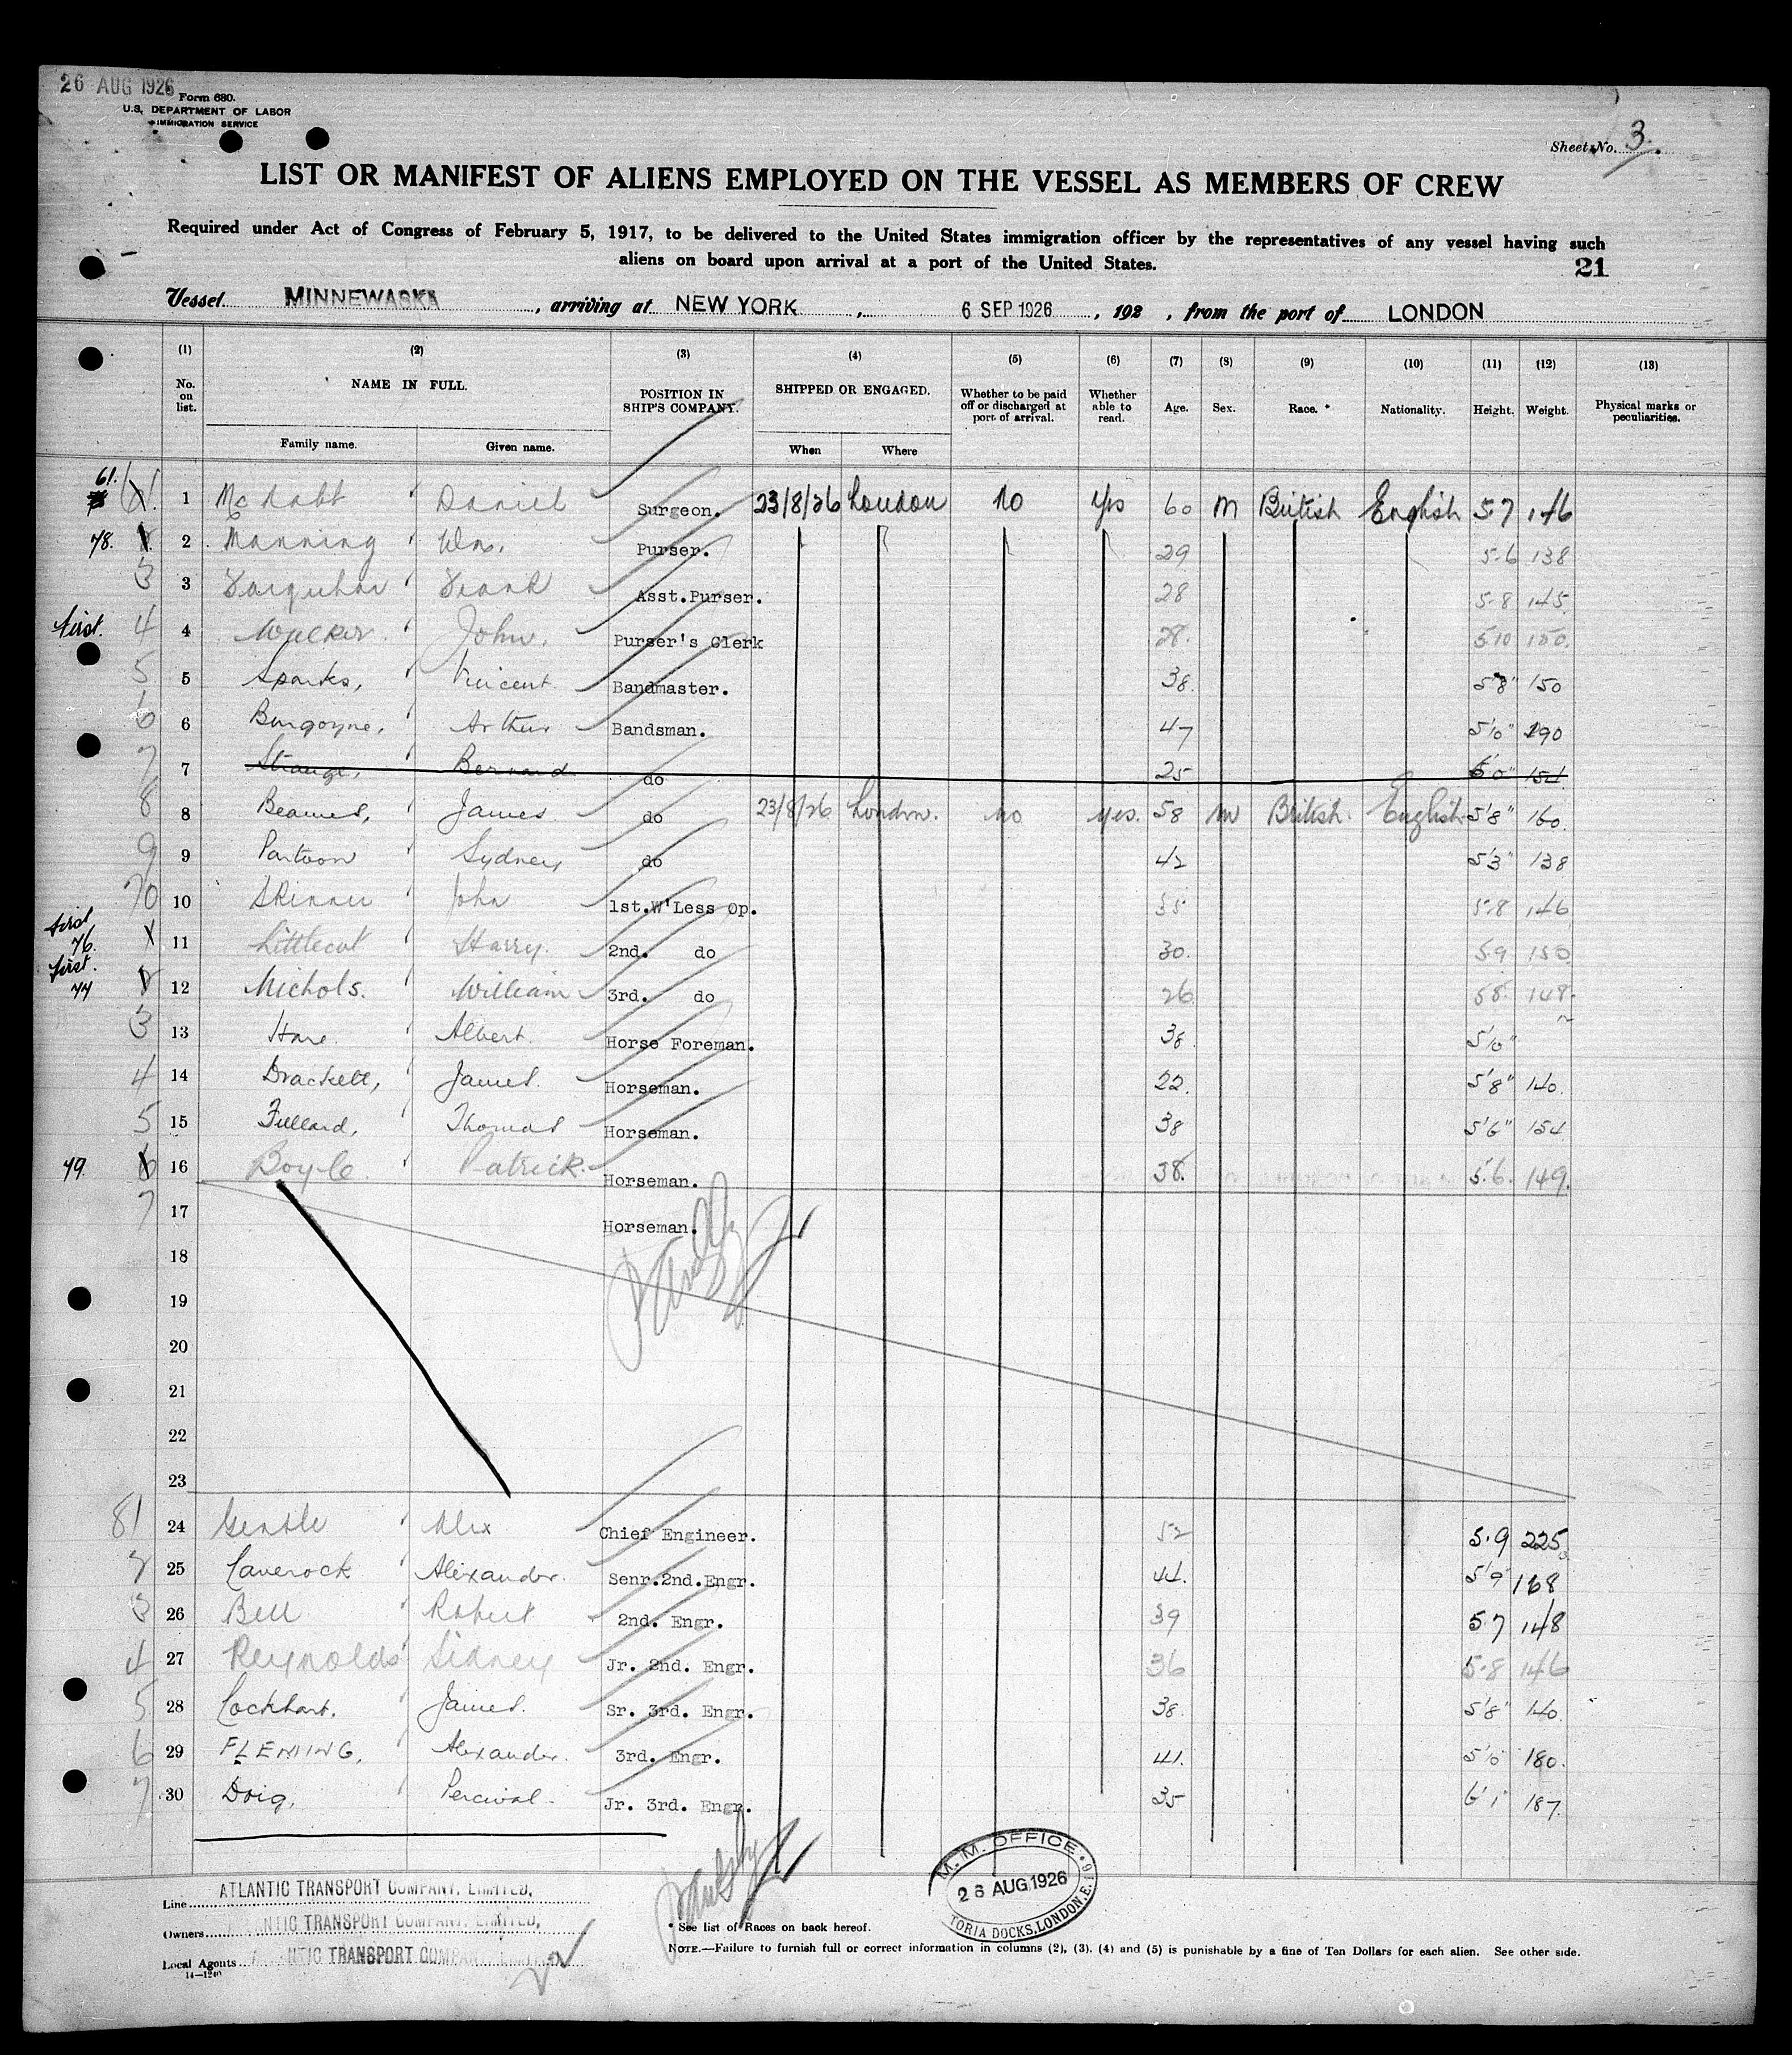 26 AUG 1926
Form 680.
U.S. DEPARTMENT OF LABOR
IMMIGRATION SERVICE
Sheet No. 3.
LIST OR MANIFEST OF ALIENS EMPLOYED ON THE VESSEL AS MEMBERS OF CREW
Required under Act of Congress of February 5, 1917, to be delivered to the United States immigration officer by the representatives of any vessel having such
aliens on board upon arrival at a port of the United States.
21
Vessel MINNEWASKA, arriving at NEW YORK, 6 SEP 1926, 192 , from the port of LONDON
(1) (2) (3) (4) (5) (6) (7) (8) (9) (10) (11) (12) (13)
No. on list. NAME IN FULL. POSITION IN SHIP'S COMPANY. SHIPPED OR ENGAGED. Whether to be paid off or discharged at port of arrival. Whether able to read. Age. Sex. Race. * Nationality. Height. Weight. Physical marks or peculiarities.
Family name. Given name. When Where
61. 1 Daniel Surgeon. 23/8/26 London No Yes 60 M British English 5.7 146
78. 2 Manning Wm. Purser. 29 5-6 138
3 3 Farquhar Frank Asst.Purser. 28 5-8 145
first. 4 4 Walker John. Purser's Clerk 28. 5-10 150.
5 5 Sparks, Vincent Bandmaster. 38. 5'8" 150
6 6 Burgoyne, Arthur Bandsman. 47 5'10" 190
7 7 Strange, Bernard do 25 6'0" 154
8 8 James do 23/8/26 London. no yes. 58 M British. English 5'8" 160.
9 9 Sydney do 42 5'3" 138
70 10 Skinner John 1st.W'Less Op. 35 5-8 146
first 76. 11 Harry. 2nd. do 30. 5.9 150.
first. 77 12 Nichols. William 3rd. do 26. 5.8. 148.
3 13 Hare. Albert. Horse Foreman. 38. 5'10"
4 14 Brackett, James. Horseman. 22. 5'8" 140.
5 15 Fullard, Thomas Horseman. 38 5'6" 154
79. 16 Boyle. Patrick. Horseman. 38. 5.6. 149.
7 17 Horseman.
18
19
20
21
22
23
81 24 Gentle Alex Chief Engineer. 52 5.9 225
2 25 Laverock Alexander. Senr.2nd.Engr. 44. 5'9" 168
3 26 Bell Robert 2nd. Engr. 39 5.7 148
4 27 Reynolds Sidney Jr. 2nd. Engr. 36 5-8 146
5 28 Lockhart. James. Sr. 3rd. Engr. 38. 5'8" 140.
6 29 FLEMING, Alexander. 3rd. Engr. 41. 5'10 180.
7 30 Doig, Percival. Jr. 3rd. Engr. 35 6'1" 187.
Line ATLANTIC TRANSPORT COMPANY, LIMITED,
Owners ATLANTIC TRANSPORT COMPANY, LIMITED,
Local Agents ATLANTIC TRANSPORT COMPANY, LIMITED
14—1240
M. M. OFFICE
26 AUG 1926
TORIA DOCKS, LONDON, E.
* See list of Races on back hereof.
NOTE.—Failure to furnish full or correct information in columns (2), (3), (4) and (5) is punishable by a fine of Ten Dollars for each alien. See other side.